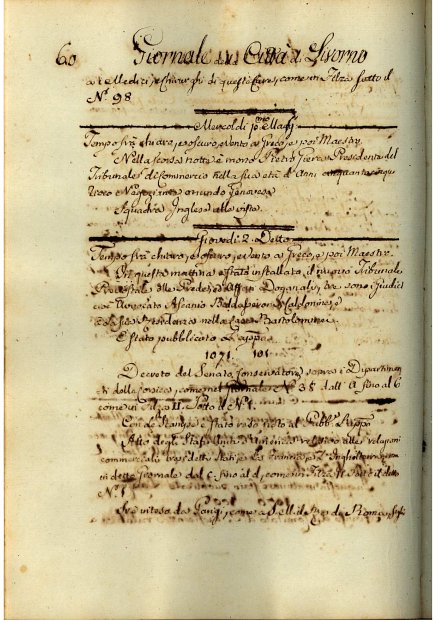 60 Giornale della Città di Livorno
e Medici, e Chirurghi di questa Città, come in Filza sotto il
N.° 98
Mercoldì p.mo Maggio
Tempo frà chiaro, e oscuro, e vento a Greco, e poi Maestr.
Nella scorsa notte è morto Pietro Presidente del
Tribunale di Commercio nella sua età d'Anni cinquantacinque
Negoziante oriundo Genovese
Squadra Inglese alla vista
Giovedì 2. Detto
Tempo frà chiaro, e oscuro, e vento a Greco, e poi Maestr.
In questa mattina è stato installato, il nuovo Tribunale
Prevostale delle Prede, ed Affari Doganali, di cui sono i Giudici
Avvocato Ascanio Baldasseroni
residenza nella Casa Bartolommei
È stato pubblicato
1071. 101
Decreto del Senato Conservatore, sopra i Dipartimen
ti della Corsica, come nel Giornale N.° 35 dall' A fino al 6
come in Filza II. sotto N.° 1.
Con le stampe è stato reso noto al Pubb.
Atto degli Stati Uniti d'America relativo alle relazioni
commerciali tra i detti Stati, e la Francia, e l'Inghilterra, come
in detto Giornale dal C. fino al d, come in Filza II. sotto il detto
N.° 1
Si è inteso da Parigi, come a S. M. il Rè di Roma